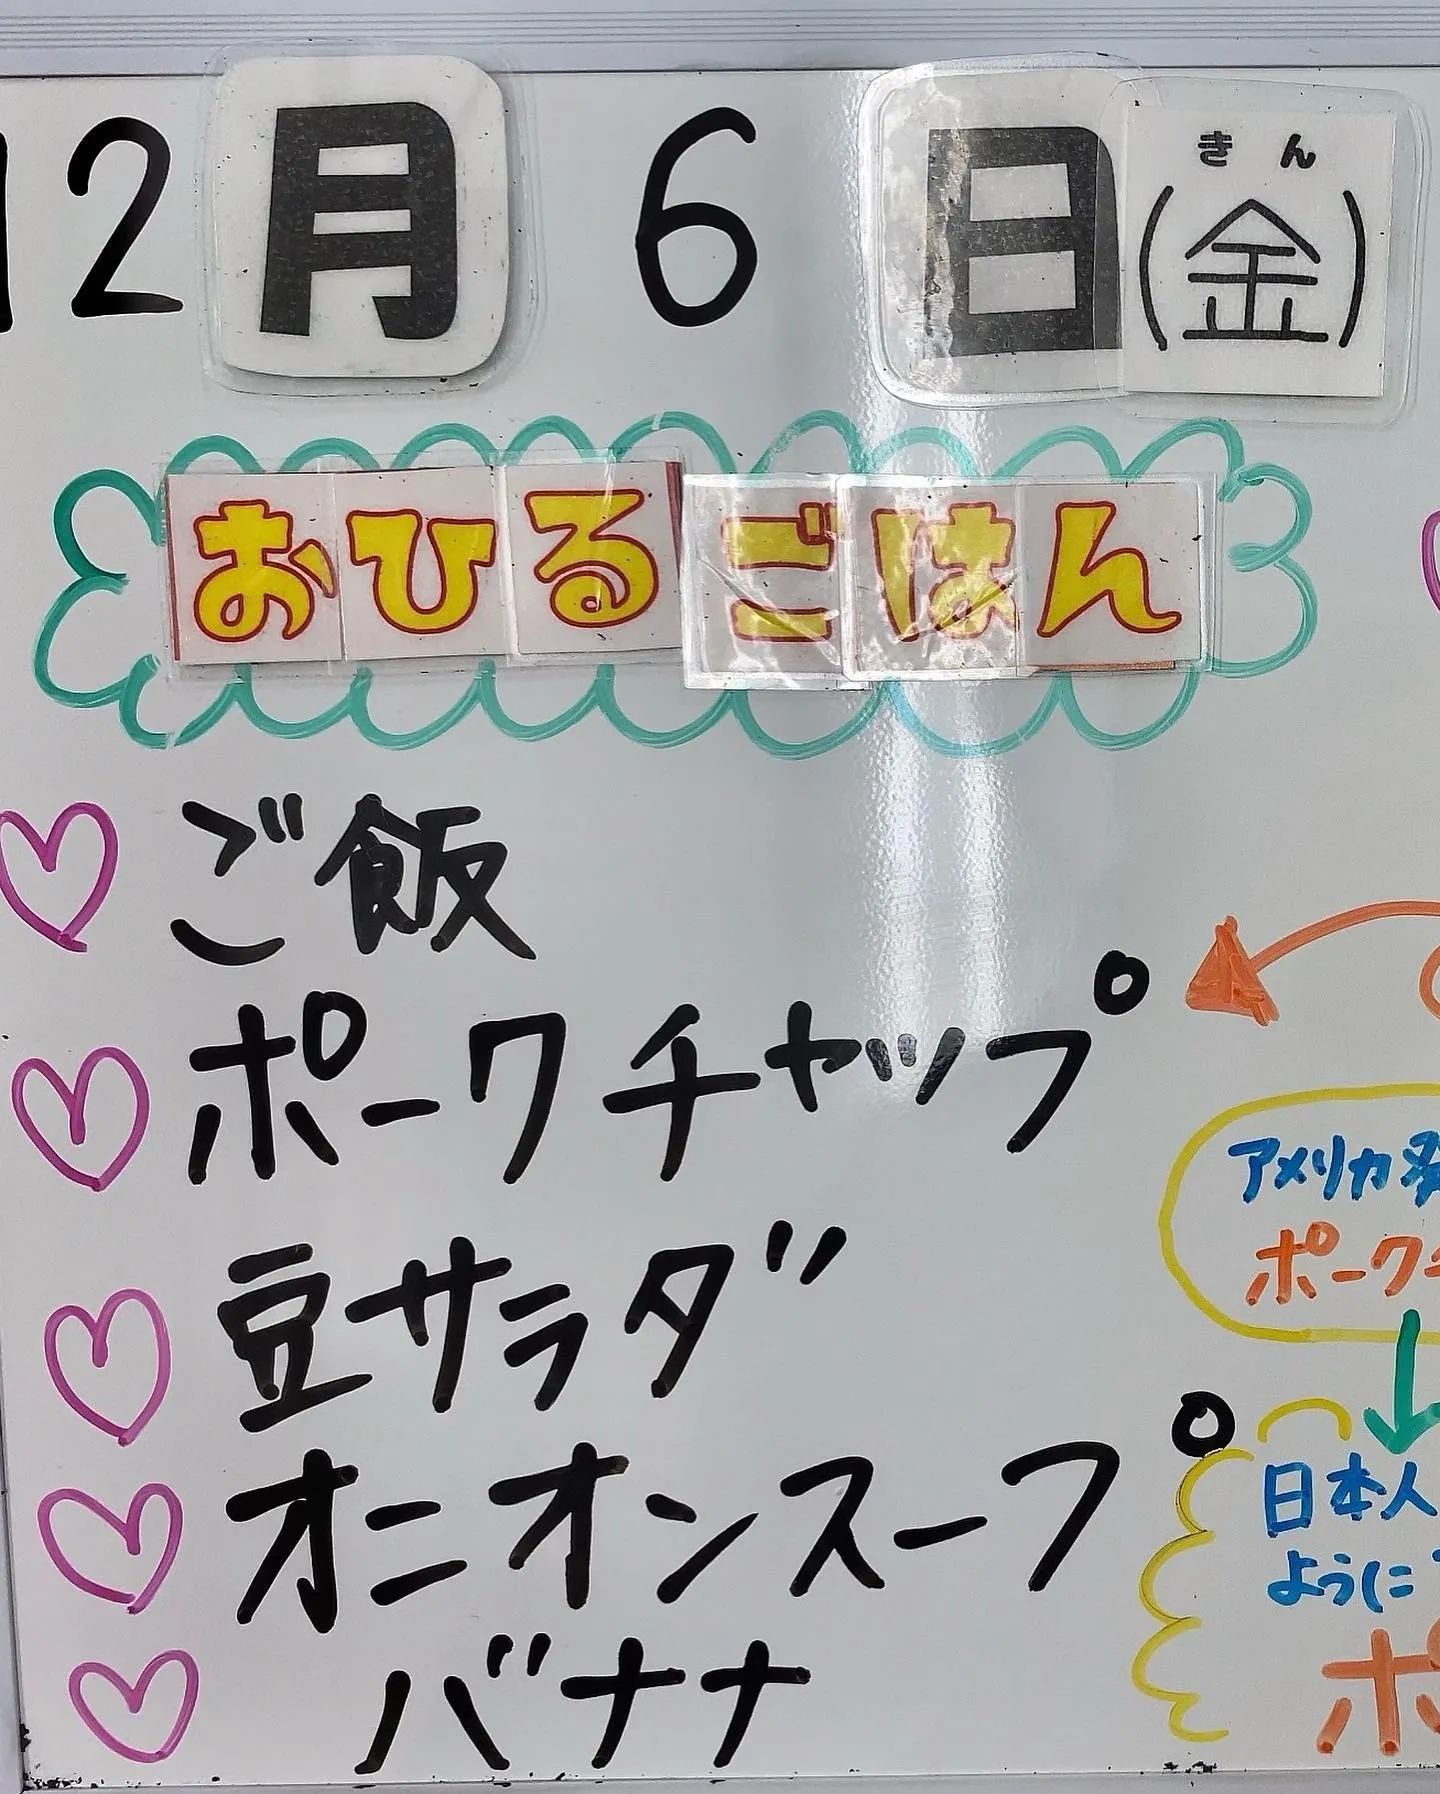 12月6日(金)
きん
おひるごはん
ご飯
ポークチャップ
豆サラダ
オニオンスープ
バナナ
アメリカ発
ポーク
日本人
ように
ポ